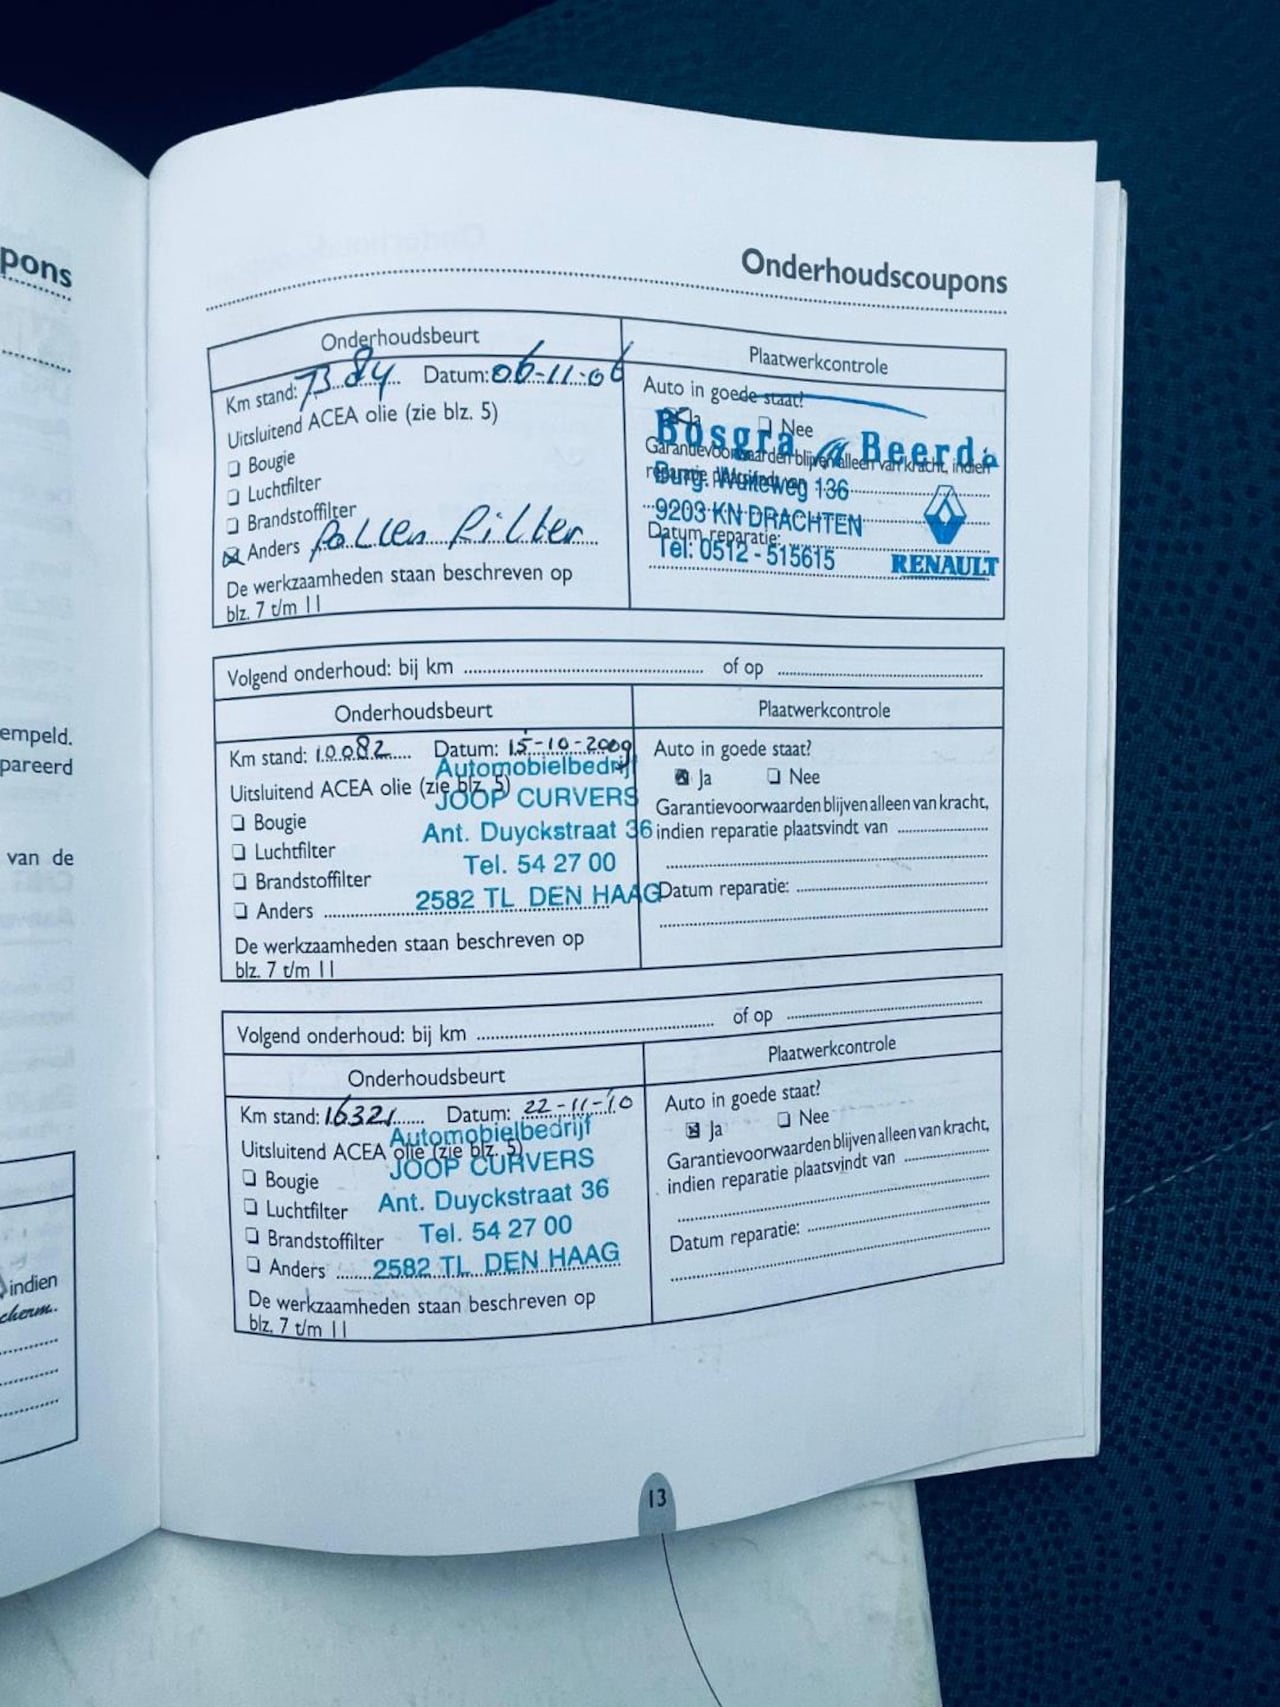 pons
empeld.
pareerd
van de
indien
cherm.
Onderhoudscoupons
Onderhoudsbeurt
Km stand: 7384 Datum: 06-11-06
Uitsluitend ACEA olie (zie blz. 5)
Bougie
Luchtfilter
Brandstoffilter
Anders Pollen filter
De werkzaamheden staan beschreven op
blz. 7 t/m 11
Plaatwerkcontrole
Auto in goede staat?
Ja Nee
Garantievoorwaarden blijven alleen van kracht, indien
reparatie plaatsvindt van
Datum reparatie:
Bosgra Beerda
Burg. Wuiteweg 136
9203 KN DRACHTEN
Tel: 0512 - 515615
RENAULT
Volgend onderhoud: bij km of op
Onderhoudsbeurt
Km stand: 10082 Datum: 15-10-2009
Uitsluitend ACEA olie (zie blz. 5)
Bougie
Luchtfilter
Brandstoffilter
Anders
De werkzaamheden staan beschreven op
blz. 7 t/m 11
Automobielbedrijf
JOOP CURVERS
Ant. Duyckstraat 36
Tel. 54 27 00
2582 TL DEN HAAG
Plaatwerkcontrole
Auto in goede staat?
Ja Nee
Garantievoorwaarden blijven alleen van kracht,
indien reparatie plaatsvindt van
Datum reparatie:
Volgend onderhoud: bij km of op
Onderhoudsbeurt
Km stand: 16321 Datum: 22-11-10
Uitsluitend ACEA olie (zie blz. 5)
Bougie
Luchtfilter
Brandstoffilter
Anders
De werkzaamheden staan beschreven op
blz. 7 t/m 11
Automobielbedrijf
JOOP CURVERS
Ant. Duyckstraat 36
Tel. 54 27 00
2582 TL DEN HAAG
Plaatwerkcontrole
Auto in goede staat?
Ja Nee
Garantievoorwaarden blijven alleen van kracht,
indien reparatie plaatsvindt van
Datum reparatie:
13